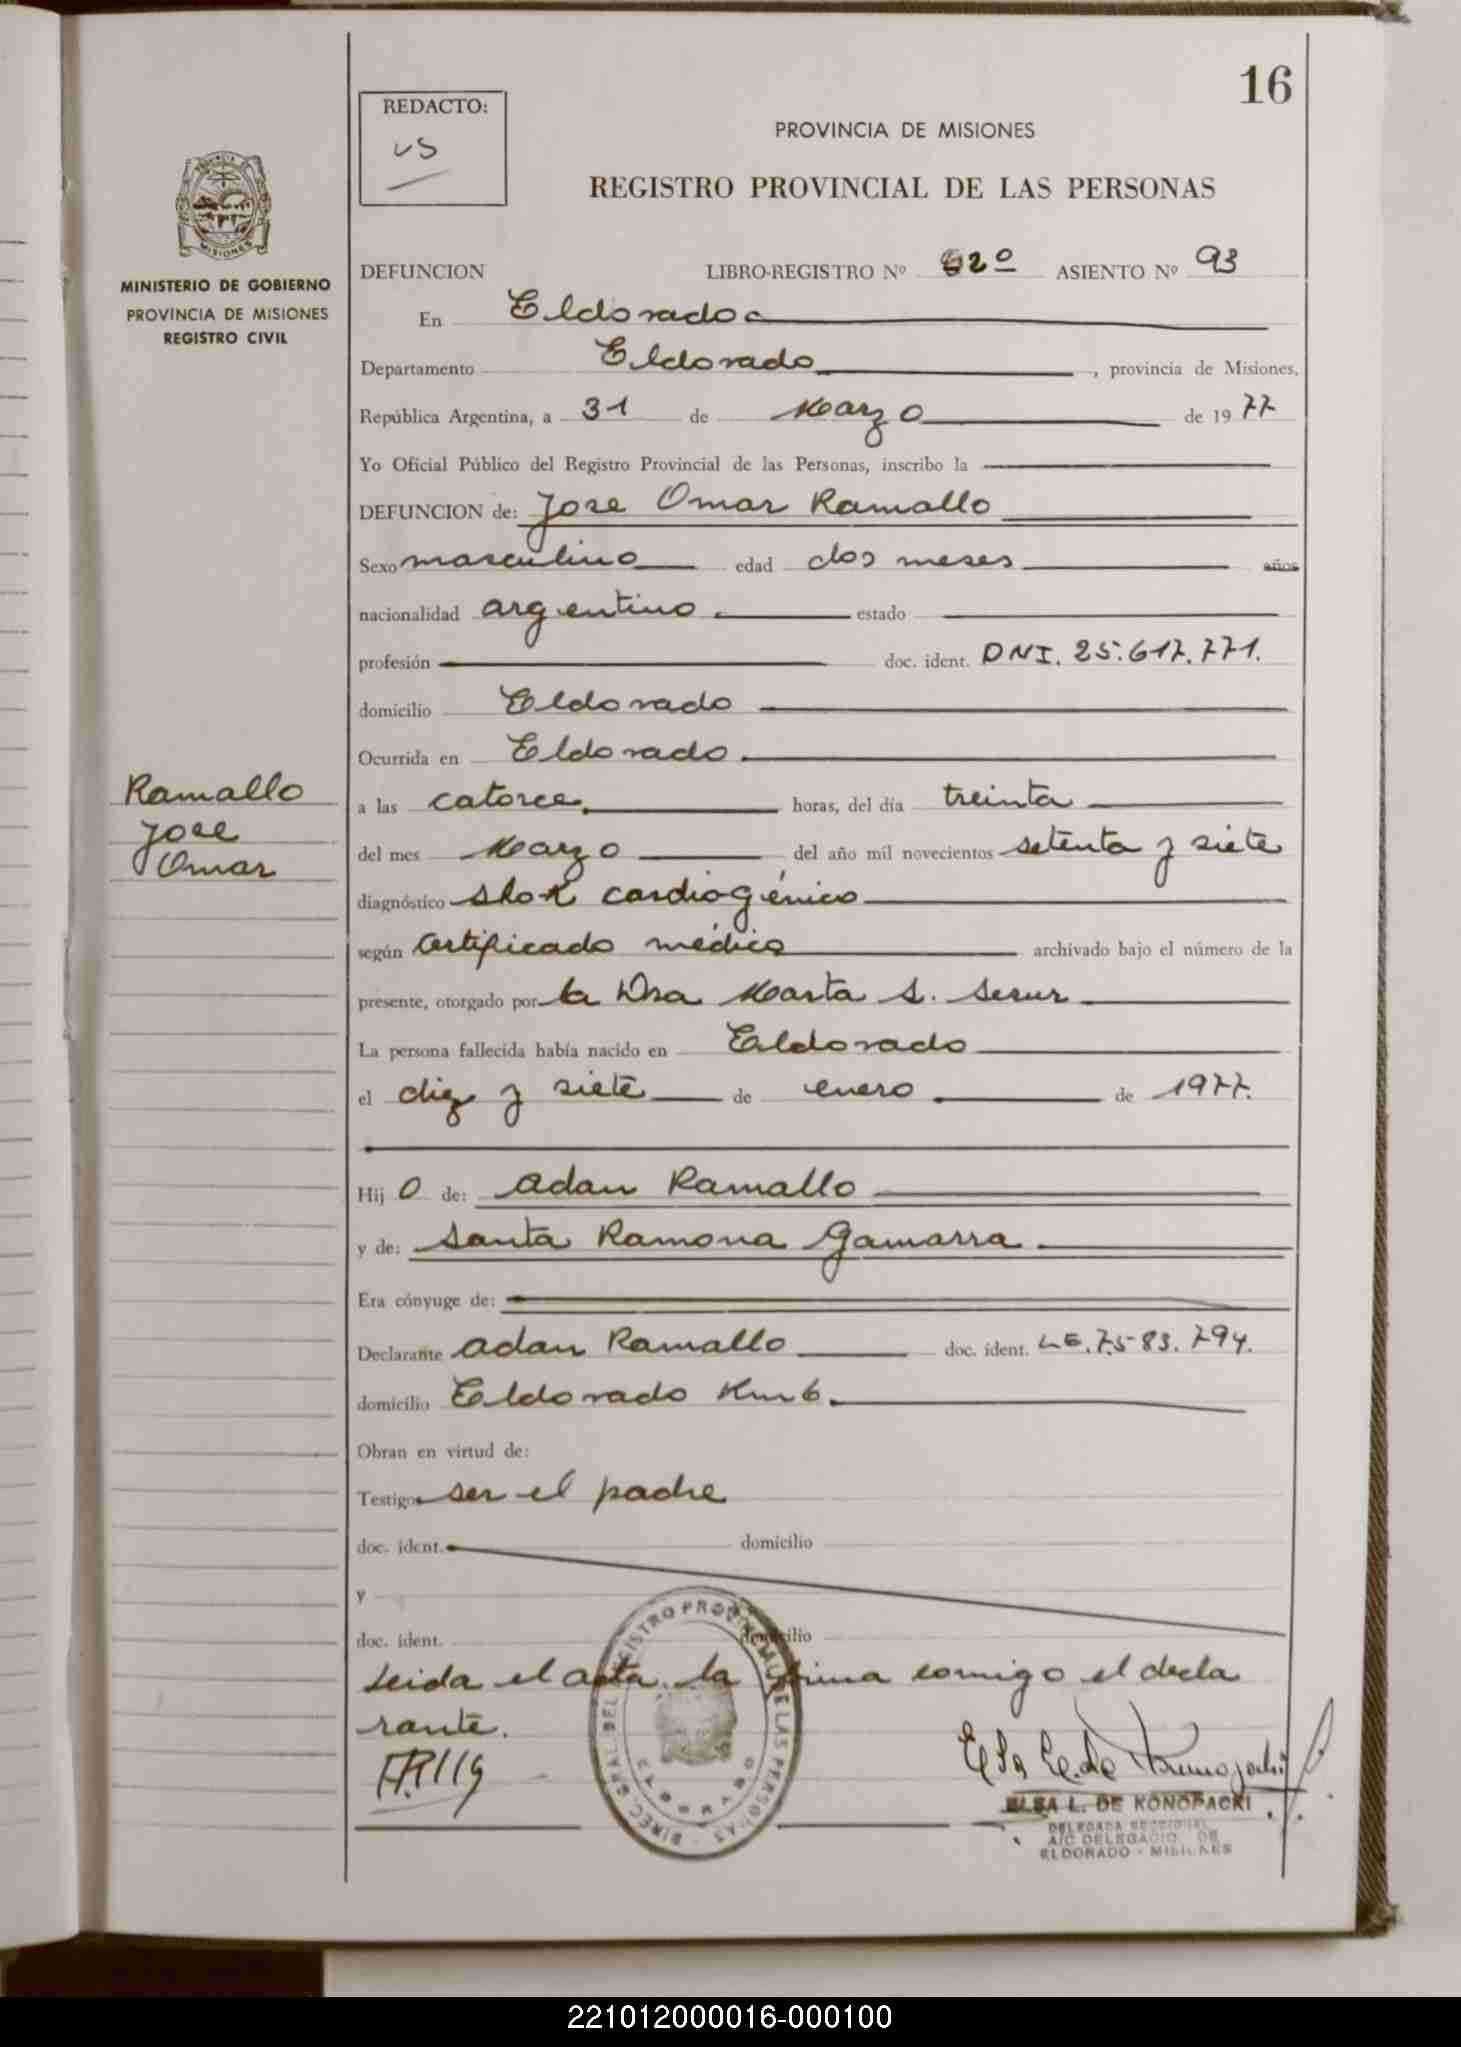 16
REDACTO:
PROVINCIA DE MISIONES
REGISTRO PROVINCIAL DE LAS PERSONAS
MINISTERIO DE GOBIERNO
PROVINCIA DE MISIONES
REGISTRO CIVIL
DEFUNCION LIBRO-REGISTRO Nº 2º ASIENTO Nº 93
En Eldorado
Departamento Eldorado, provincia de Misiones,
República Argentina, a 31 de Marzo de 1977
Yo Oficial Público del Registro Provincial de las Personas, inscribo la
DEFUNCION de: Jose Omar Ramallo
Sexo masculino edad dos meses años
nacionalidad argentino estado
profesión doc. ident. DNI. 25.617.771.
domicilio Eldorado
Ocurrida en Eldorado
Ramallo
Jose
Omar
a las catorce horas, del día treinta
del mes Marzo del año mil novecientos setenta y siete
diagnóstico shok cardiogénico
según Certificado médico archivado bajo el número de la
presente, otorgado por la Dra Marta S. Serur
La persona fallecida había nacido en Eldorado
el diez y siete de enero de 1977.
Hij o de: Adan Ramallo
y de: Santa Ramona Gamarra
Era cónyuge de:
Declarante Adan Ramallo doc. ident. LE. 7.583.794.
domicilio Eldorado Km 6.
Obran en virtud de:
Testigos ser el padre
doc. ident. domicilio
y
doc. ident. domicilio
Leida el acta, la firma conmigo el decla
rante.
ELSA L. DE KONOPACKI
DELEGADA SECCIONAL
A/C DELEGACIO DE
ELDORADO - MISIONES
DIREC. GRAL. DEL REGISTRO PROVINCIAL DE LAS PERSONAS
ELDORADO
221012000016-000100